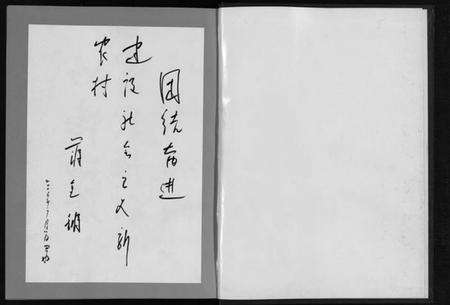 团结奋进
建设社会主义新
农村
蒋金锵